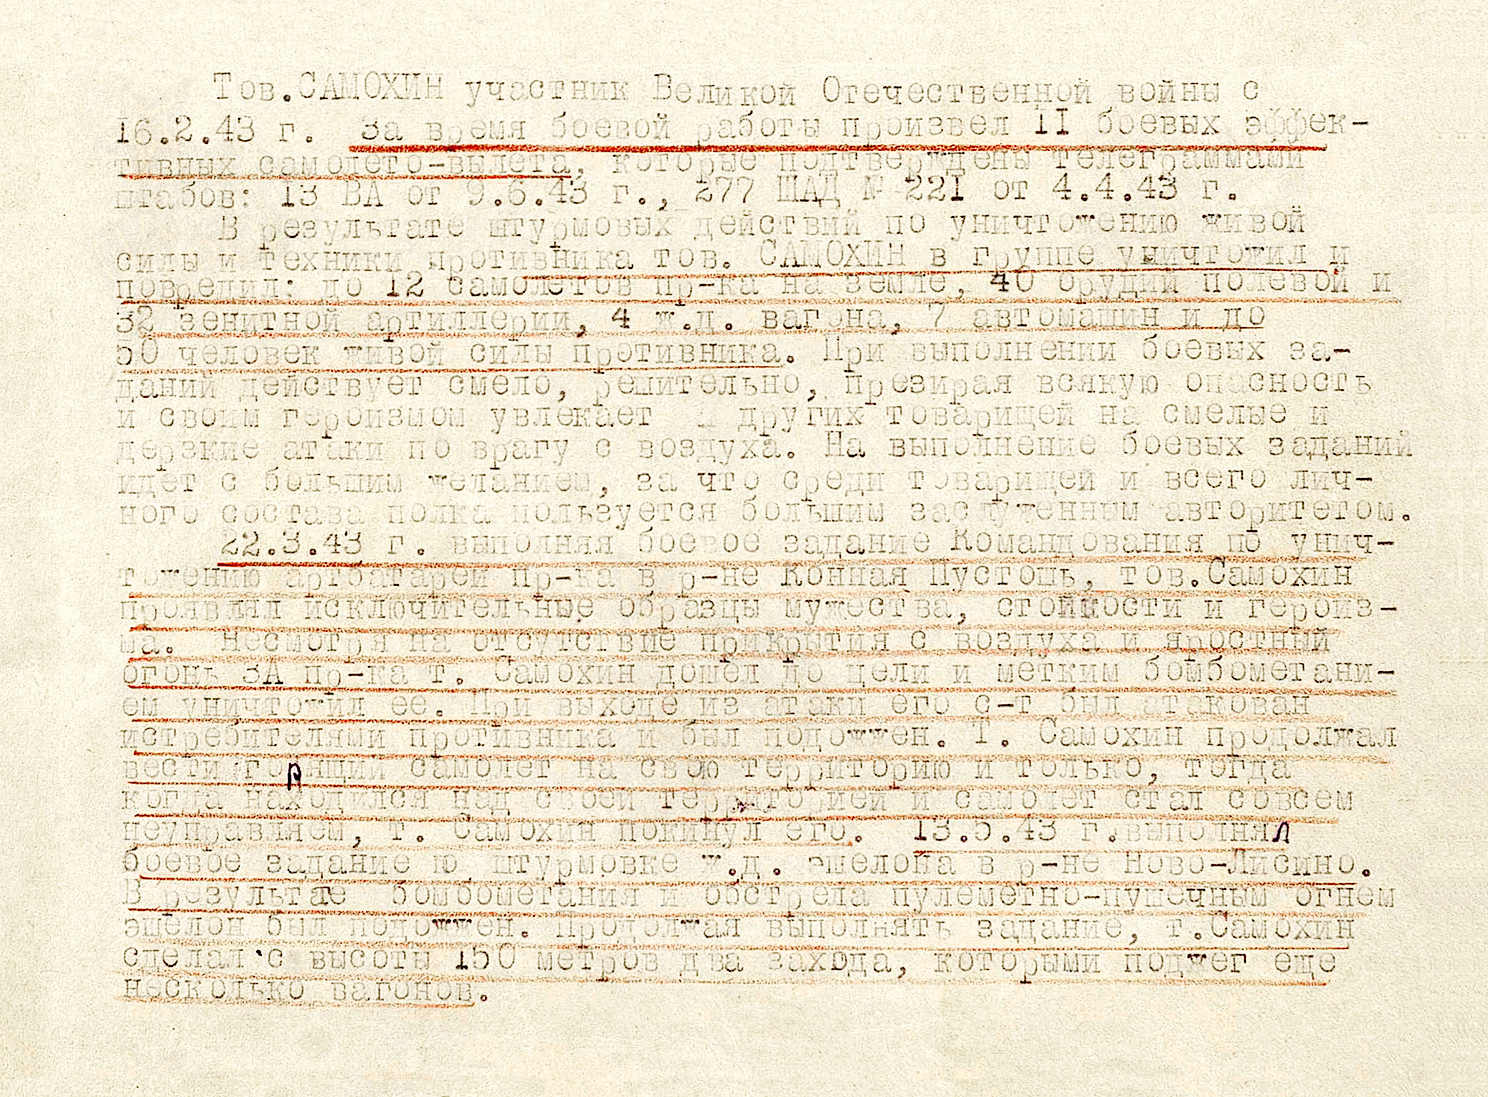 Тов.САМОХИН участник Великой Отечественной войны с
16.2.43 г. За время боевой работы произвел II боевых эффек-
тивных самолето-вылета, которые подтверждены телеграммами
штабов: 13 ВА от 9.6.43 г., 277 ШАД № 221 от 4.4.43 г.
В результате штурмовых действий по уничтожению живой
силы и техники противника тов. САМОХИН в группе уничтожил и
повредил: до 12 самолетов пр-ка на земле, 40 орудий полевой и
32 зенитной артиллерии, 4 ж.д. вагона, 7 автомашин и до
50 человек живой силы противника. При выполнении боевых за-
даний действует смело, решительно, презирая всякую опасность
и своим героизмом увлекает других товарищей на смелые и
дерзкие атаки по врагу с воздуха. На выполнение боевых заданий
идет с большим желанием, за что среди товарищей и всего лич-
ного состава полка пользуется большим заслуженным авторитетом.
22.3.43 г. выполняя боевое задание Командования по унич-
тожению артбатареи пр-ка в р-не Конная Пустошь, тов.Самохин
проявлял исключительные образцы мужества, стойкости и героиз-
ма. Несмотря на отсутствие прикрытия с воздуха и яростный
огонь ЗА пр-ка т. Самохин дошел до цели и метким бомбометани-
ем уничтожил ее. При выходе из атаки его с-т был атакован
истребителями противника и был подожжен. Т. Самохин продолжал
вести горящий самолет на свою территорию и только, тогда
когда находился над своей территорией и самолет стал совсем
неуправляем, т. Самохин покинул его. 13.5.43 г.выполнял
боевое задание по штурмовке ж.д. эшелона в р-не Ново-Лисино.
В результате бомбометания и обстрела пулеметно-пушечным огнем
эшелон был подожжен. Продолжая выполнять задание, т.Самохин
сделал с высоты 150 метров два захода, которыми поджег еще
несколько вагонов.